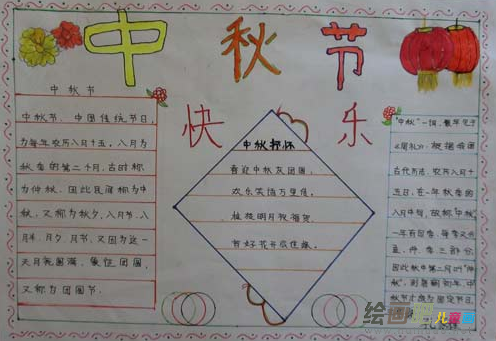 中秋节
快乐
中秋节
中秋节，中国传统节日，
为每年农历八月十五，八月为
秋季的第二个月，古时称
为仲秋，因此民间称为中
秋，又称为秋夕，八月节，八
月半，月夕，月节，又因为这一
天月亮圆满，象征团圆，
又称为团圆节。
中秋抒怀
喜迎中秋友团圆，
欢乐笑语万里传。
好花
"中秋"一词，最早见于
古代历法，农历八月十
五日，在一年秋季的
八月中旬，故称"中秋"
一年有四季，每季又分
孟、仲、季三部分
因此秋季第二月叫"仲
秋"，到唐朝初年，中
秋节才成为固定节日。
绘画吧儿童画